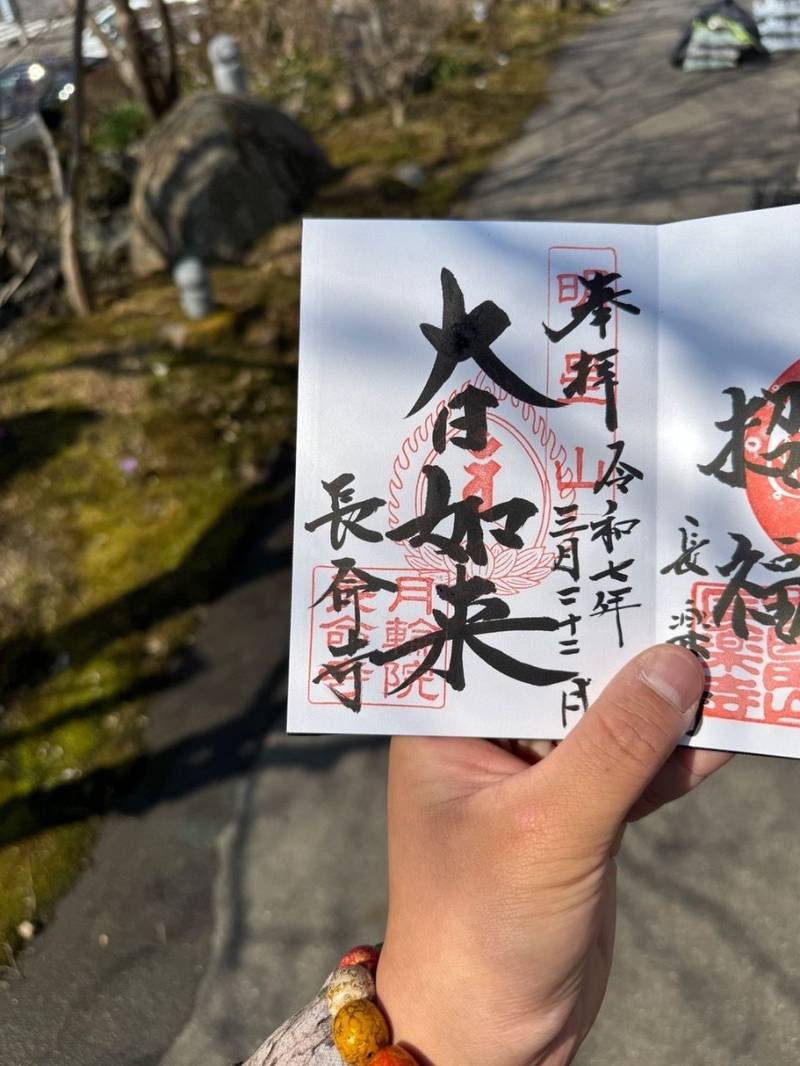 招福
長楽
奉拝 令和七年
三月二十二日
大日如来
月輪院
長命寺
長命寺